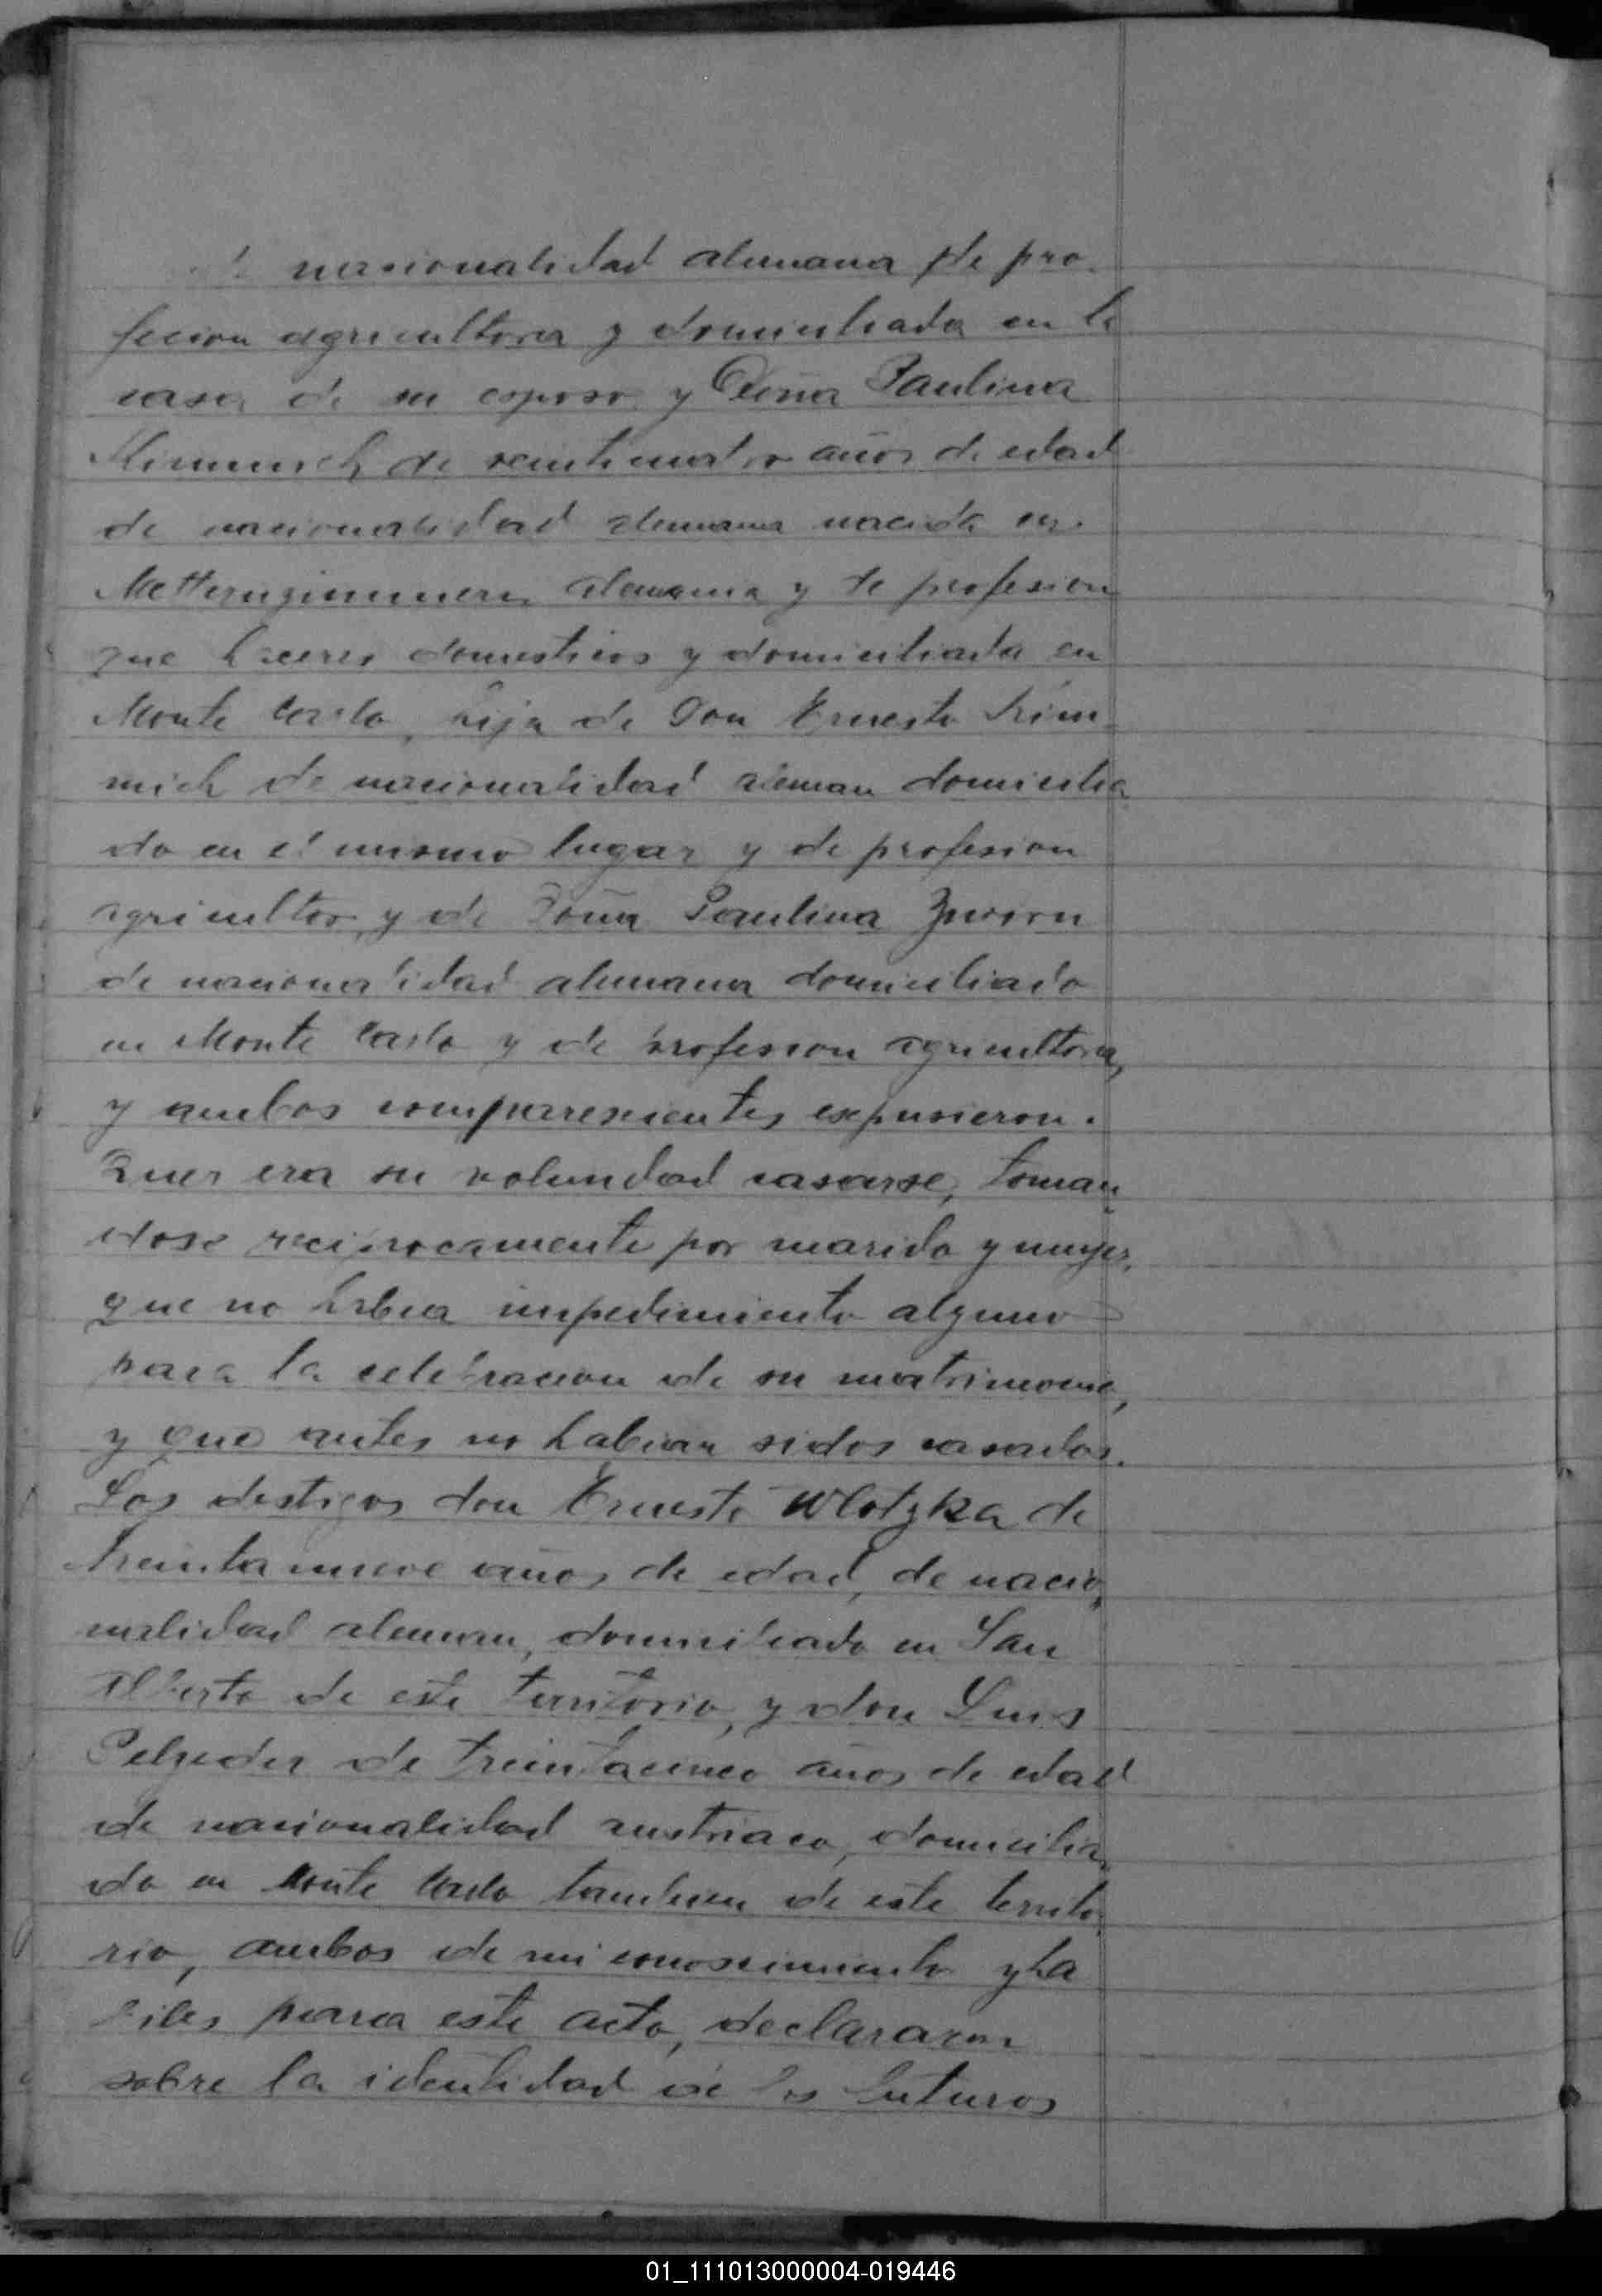 de nasionalidad alemana de pro-
fecion agricultora y domiciliada en la
casa de su esposo y Doña Paulina
Kimmich de veinticuatro años de edad
de nacionalidad alemana nacida en
alemania y de profesion
que haceres domesticos y domiciliada en
Monte Carlo, hija de Don Ernesto Kim-
mich de nacionalidad aleman domicilia
do en el mismo lugar y de profesion
agricultor, y de Doña Paulina Zwirn
de nacionalidad alemana domiciliado
en Monte Carlo y de profesion agricultora,
y ambos comparesientes expusieron.
Quer era su volundad casarse, toman
dose reciprocamente por marido y mujer,
que no habia impedimiento alguno
para la celebracion de su matrimonio,
y que antes no habian sidos casados.
Los destigos don Ernesto Wlotzka de
treinta nueve años de edad, de nacio
nalidad aleman, domiciliado en San
Alberto de este territorio, y don Luis
de treintacinco años de edad
de nacionalidad austriaco, domicilia
do en Monte Carlo tambien de este territo
rio, ambos de mi conoscimiento y ha
biles para este acto, declararon
sobre la identidad de los futuros
01_111013000004-019446